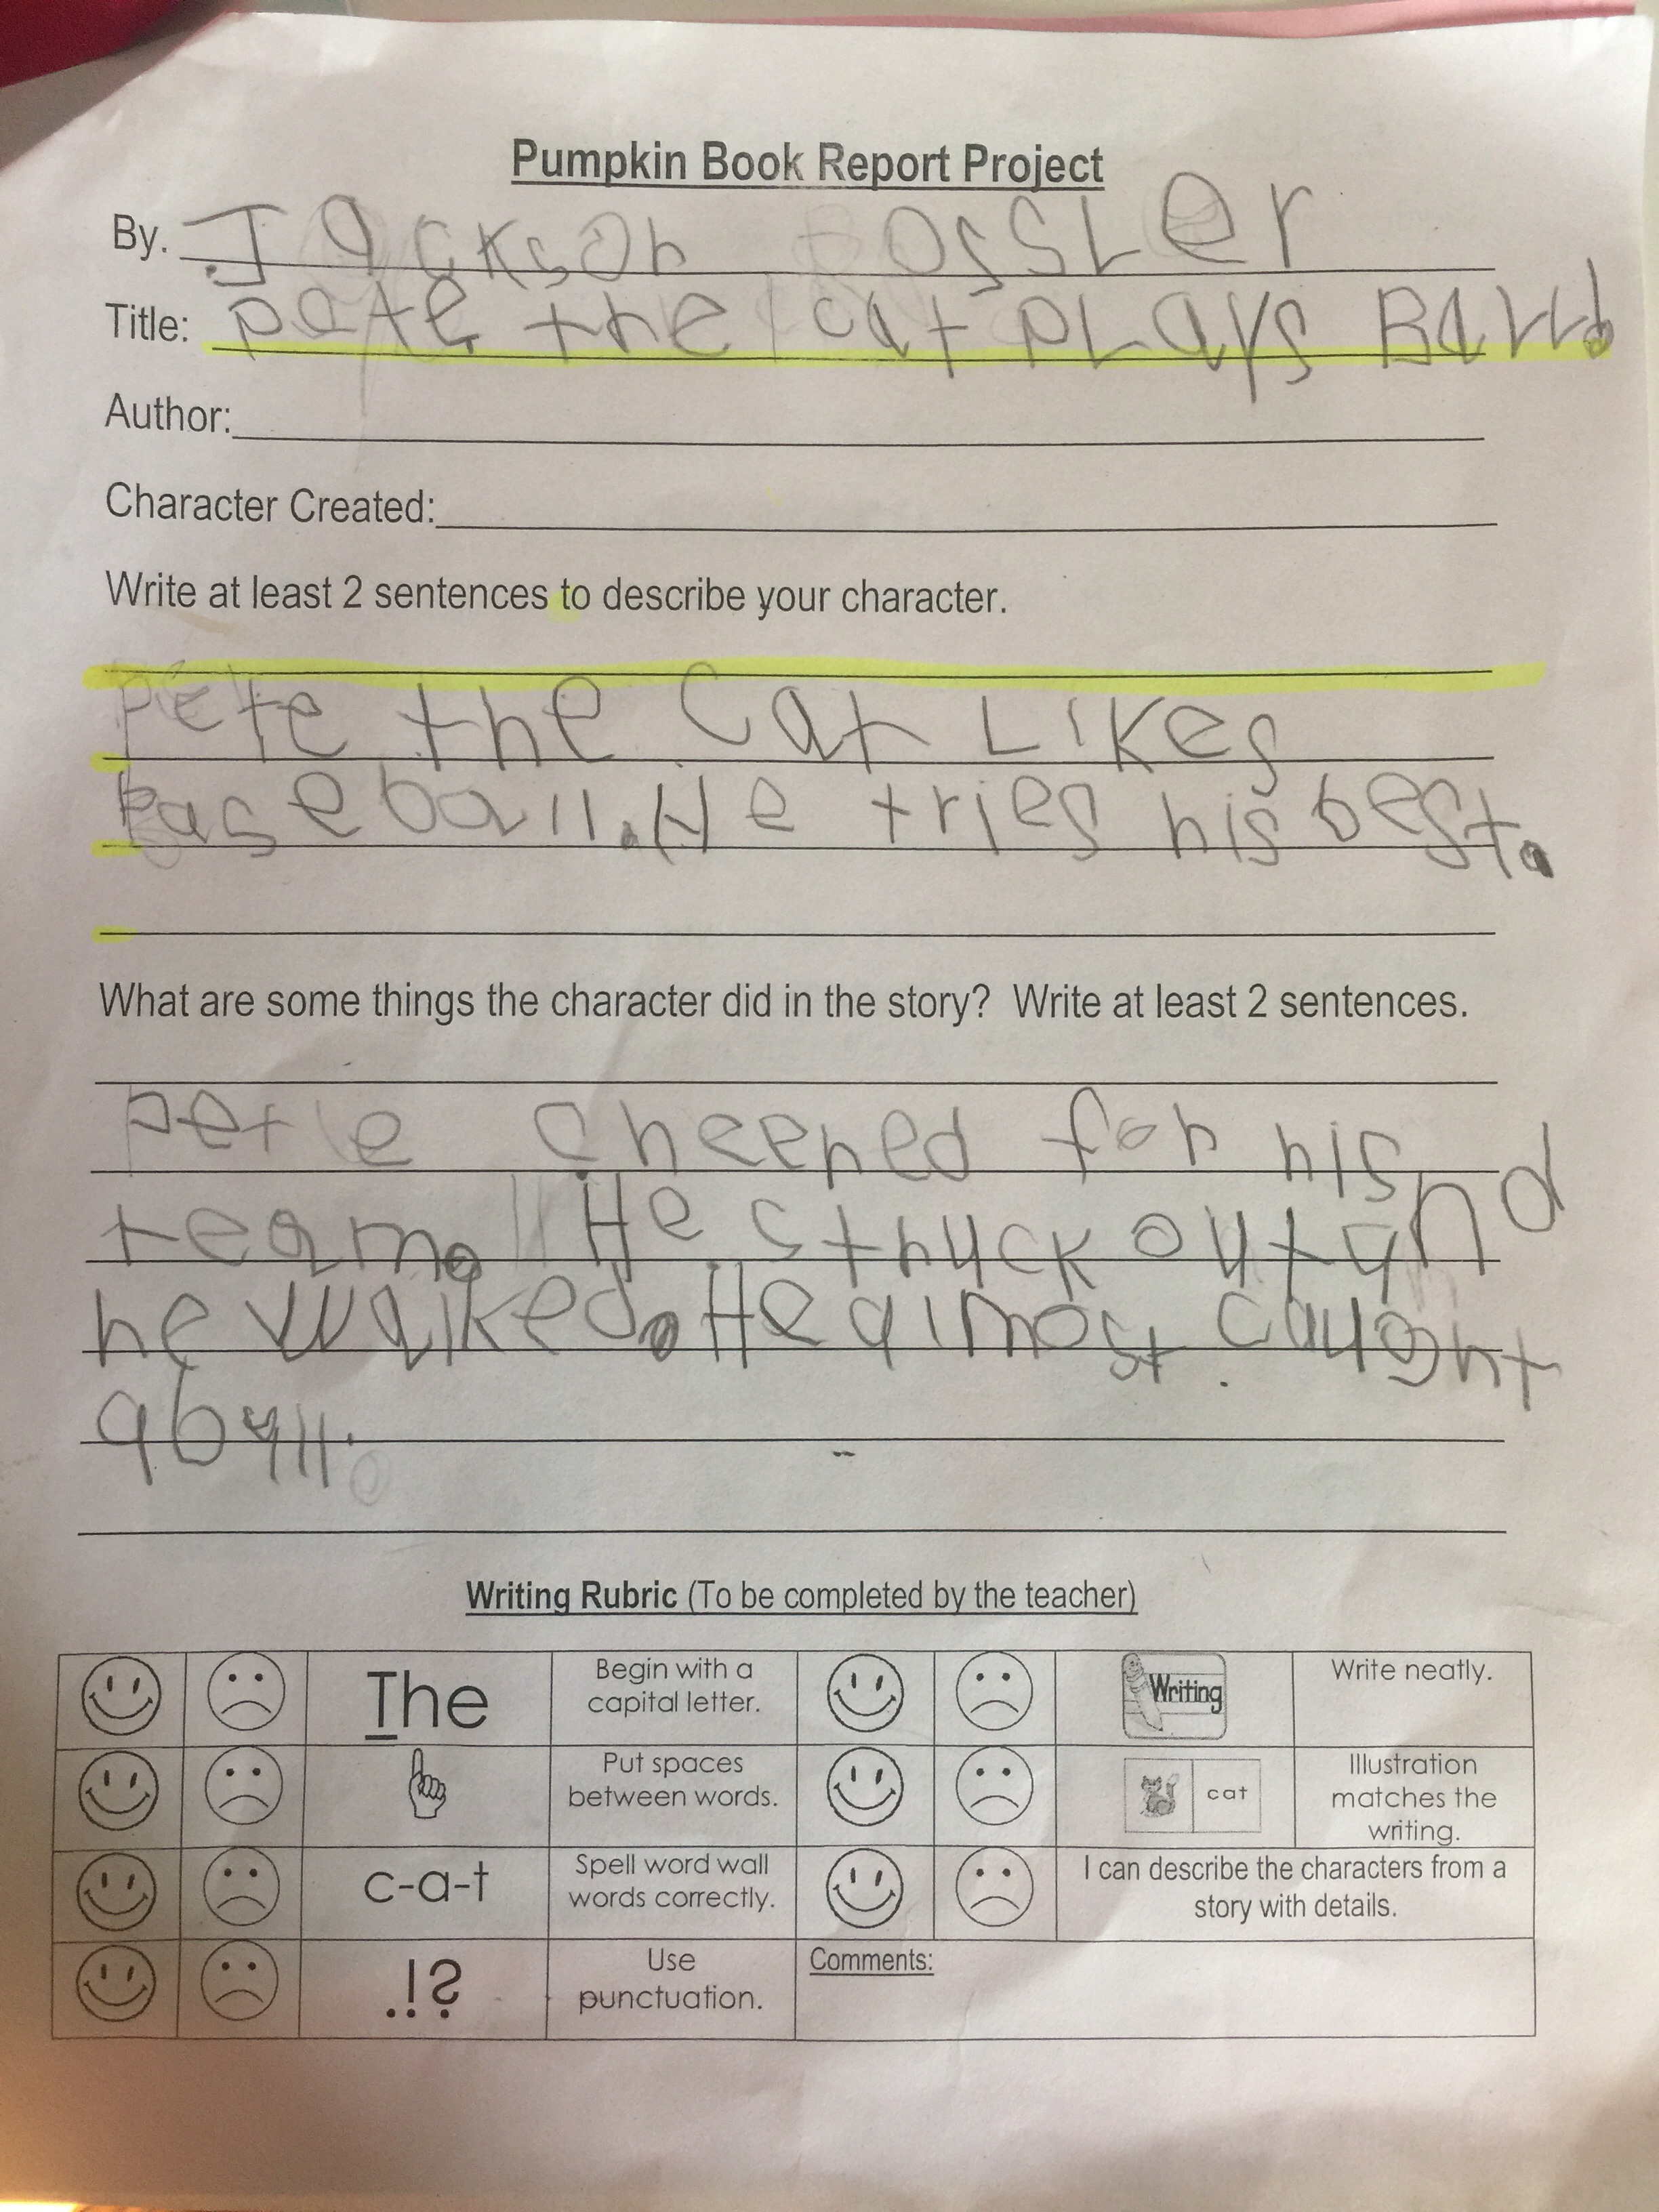 Pumpkin Book Report Project
By. Jackson Fossler
Title: pete the cat pLays Ball
Author:
Character Created:
Write at least 2 sentences to describe your character.
Pete the Cat Likes
baseball. He tries his best.
What are some things the character did in the story? Write at least 2 sentences.
pete cheered for his
team. He struck out and
he walked. He almost caught
a ball.
Writing Rubric (To be completed by the teacher)
The Begin with a capital letter. Writing Write neatly.
Put spaces between words. cat Illustration matches the writing.
c-a-t Spell word wall words correctly. I can describe the characters from a story with details.
.!? Use punctuation. Comments: